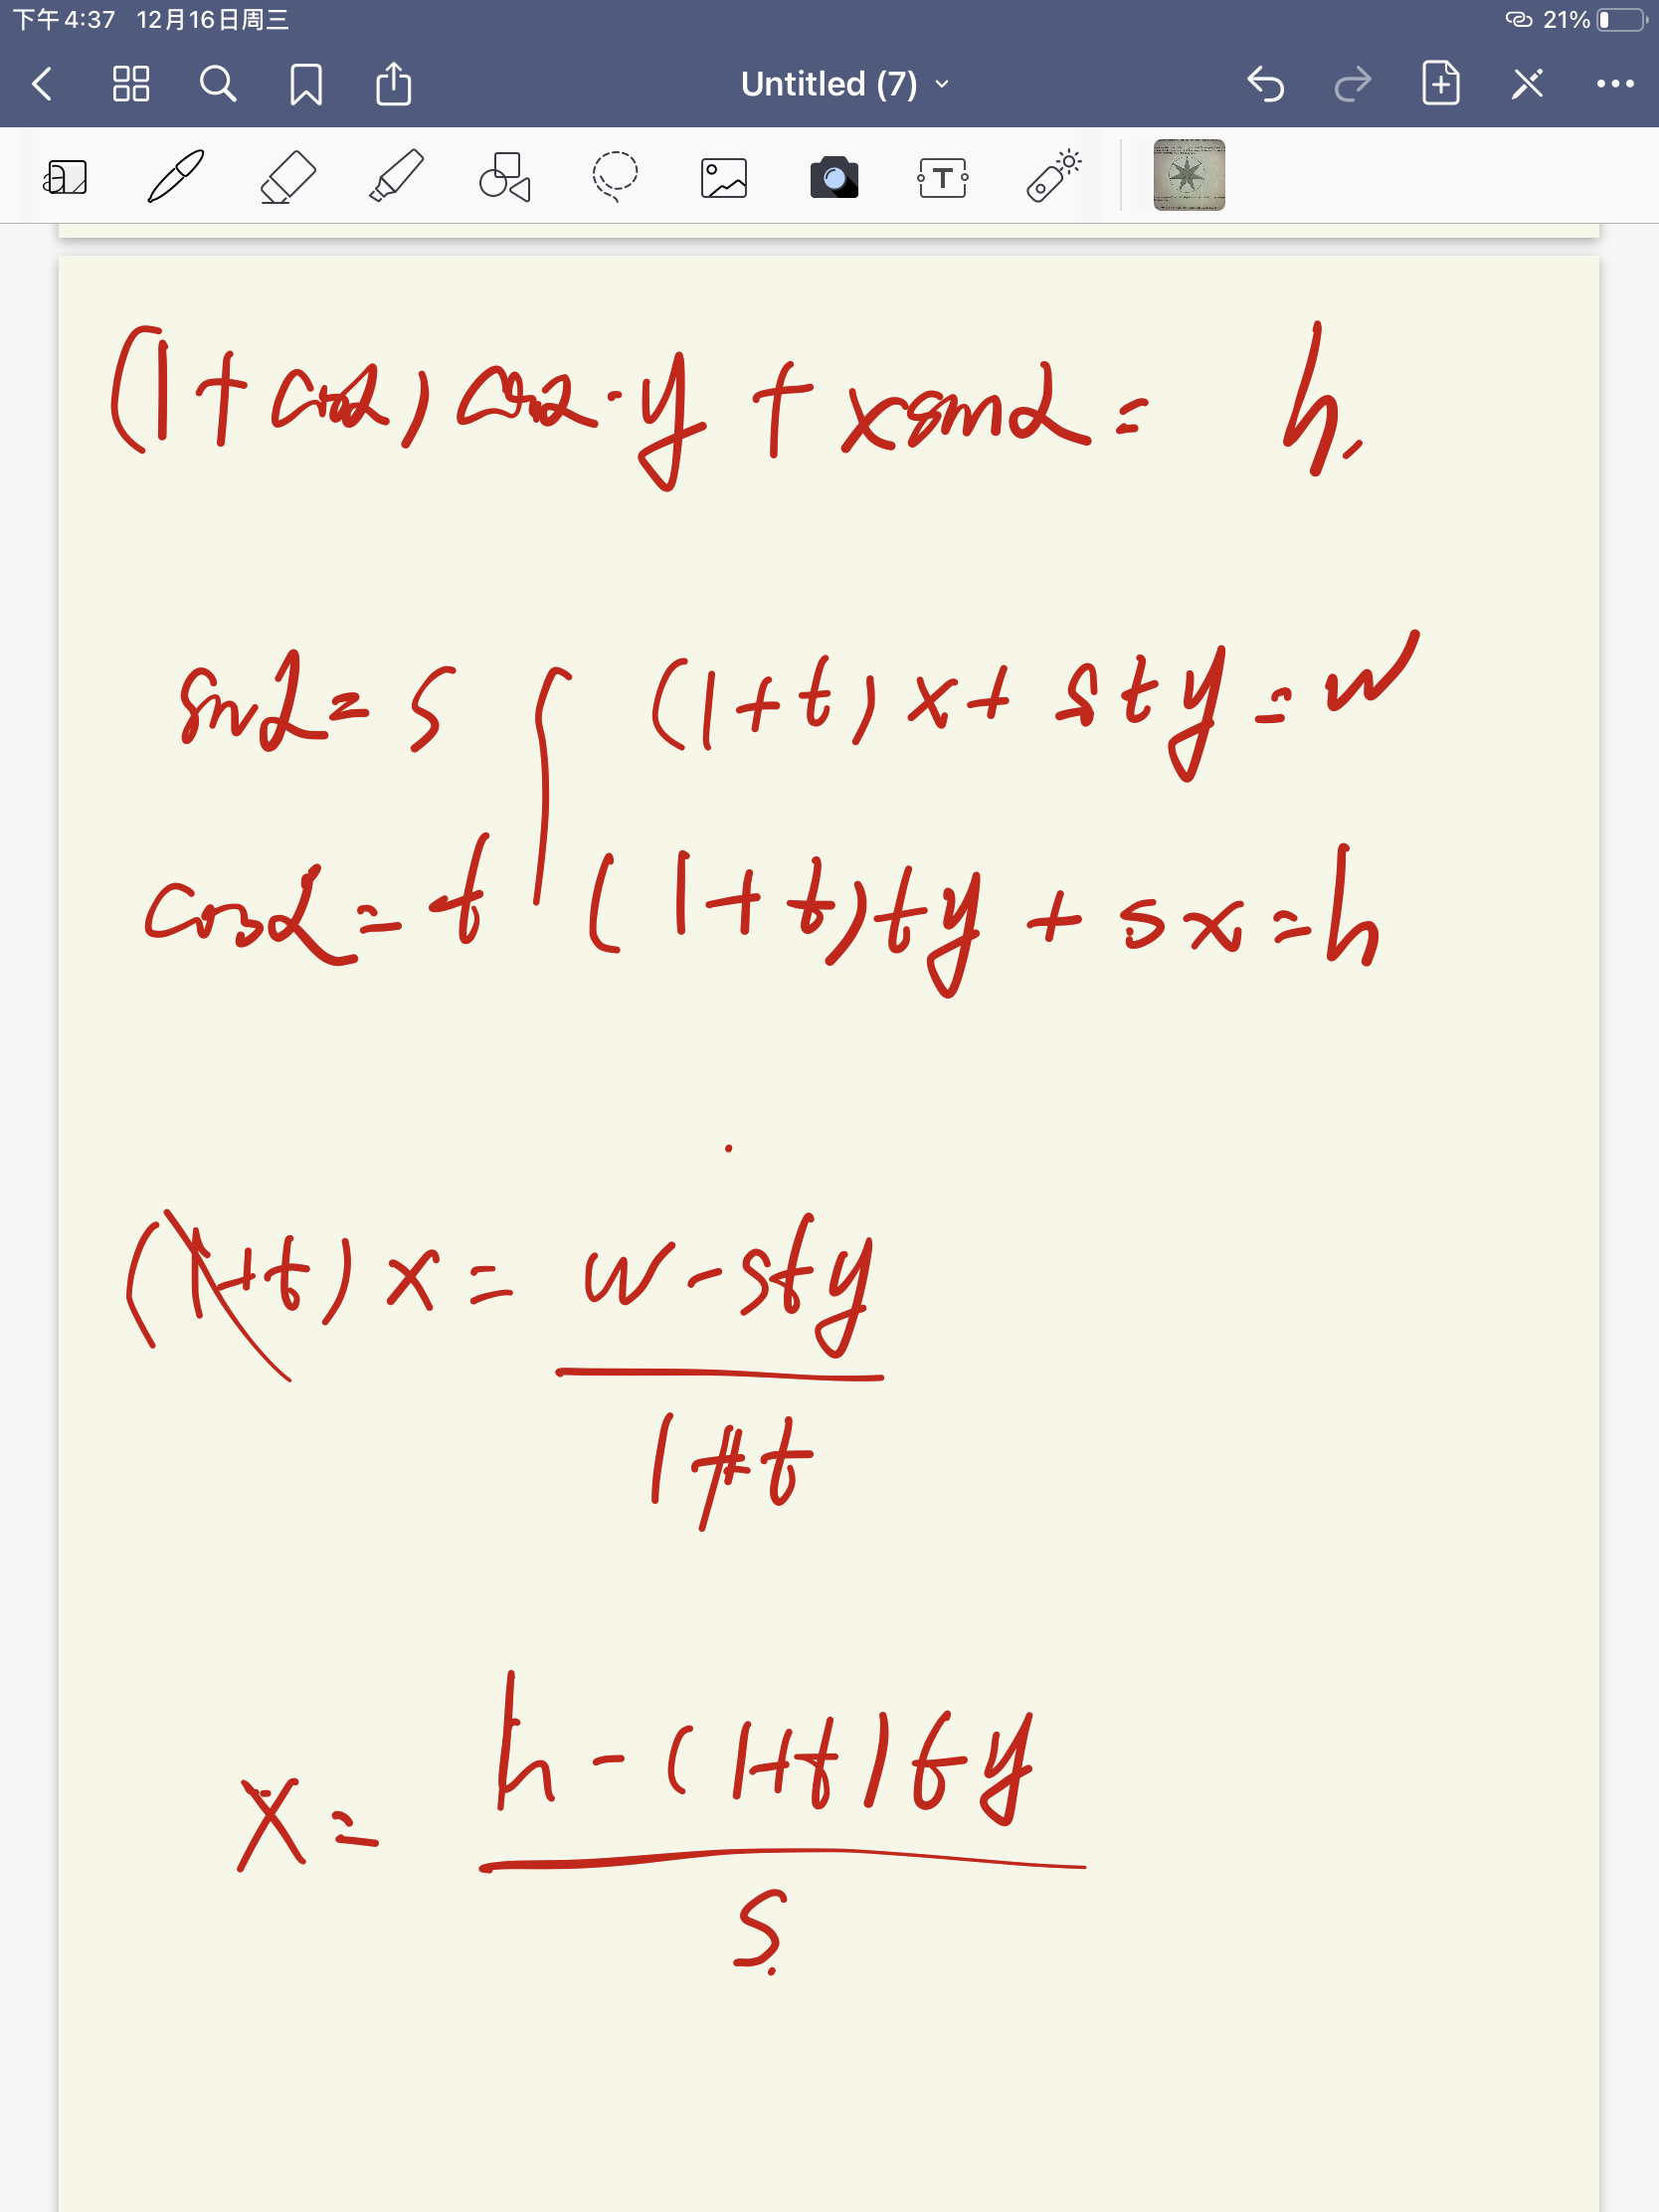 下午4:37 12月16日周三 21%
Untitled (7)
T
(1+cosα)cosα·y + xsinα = h,
sinα = s { (1+t)x + sty = w
cosα = t (1+t)ty + sx = h
(1+t)x = w-sty
1+t
x = h-(1+t)ty
s